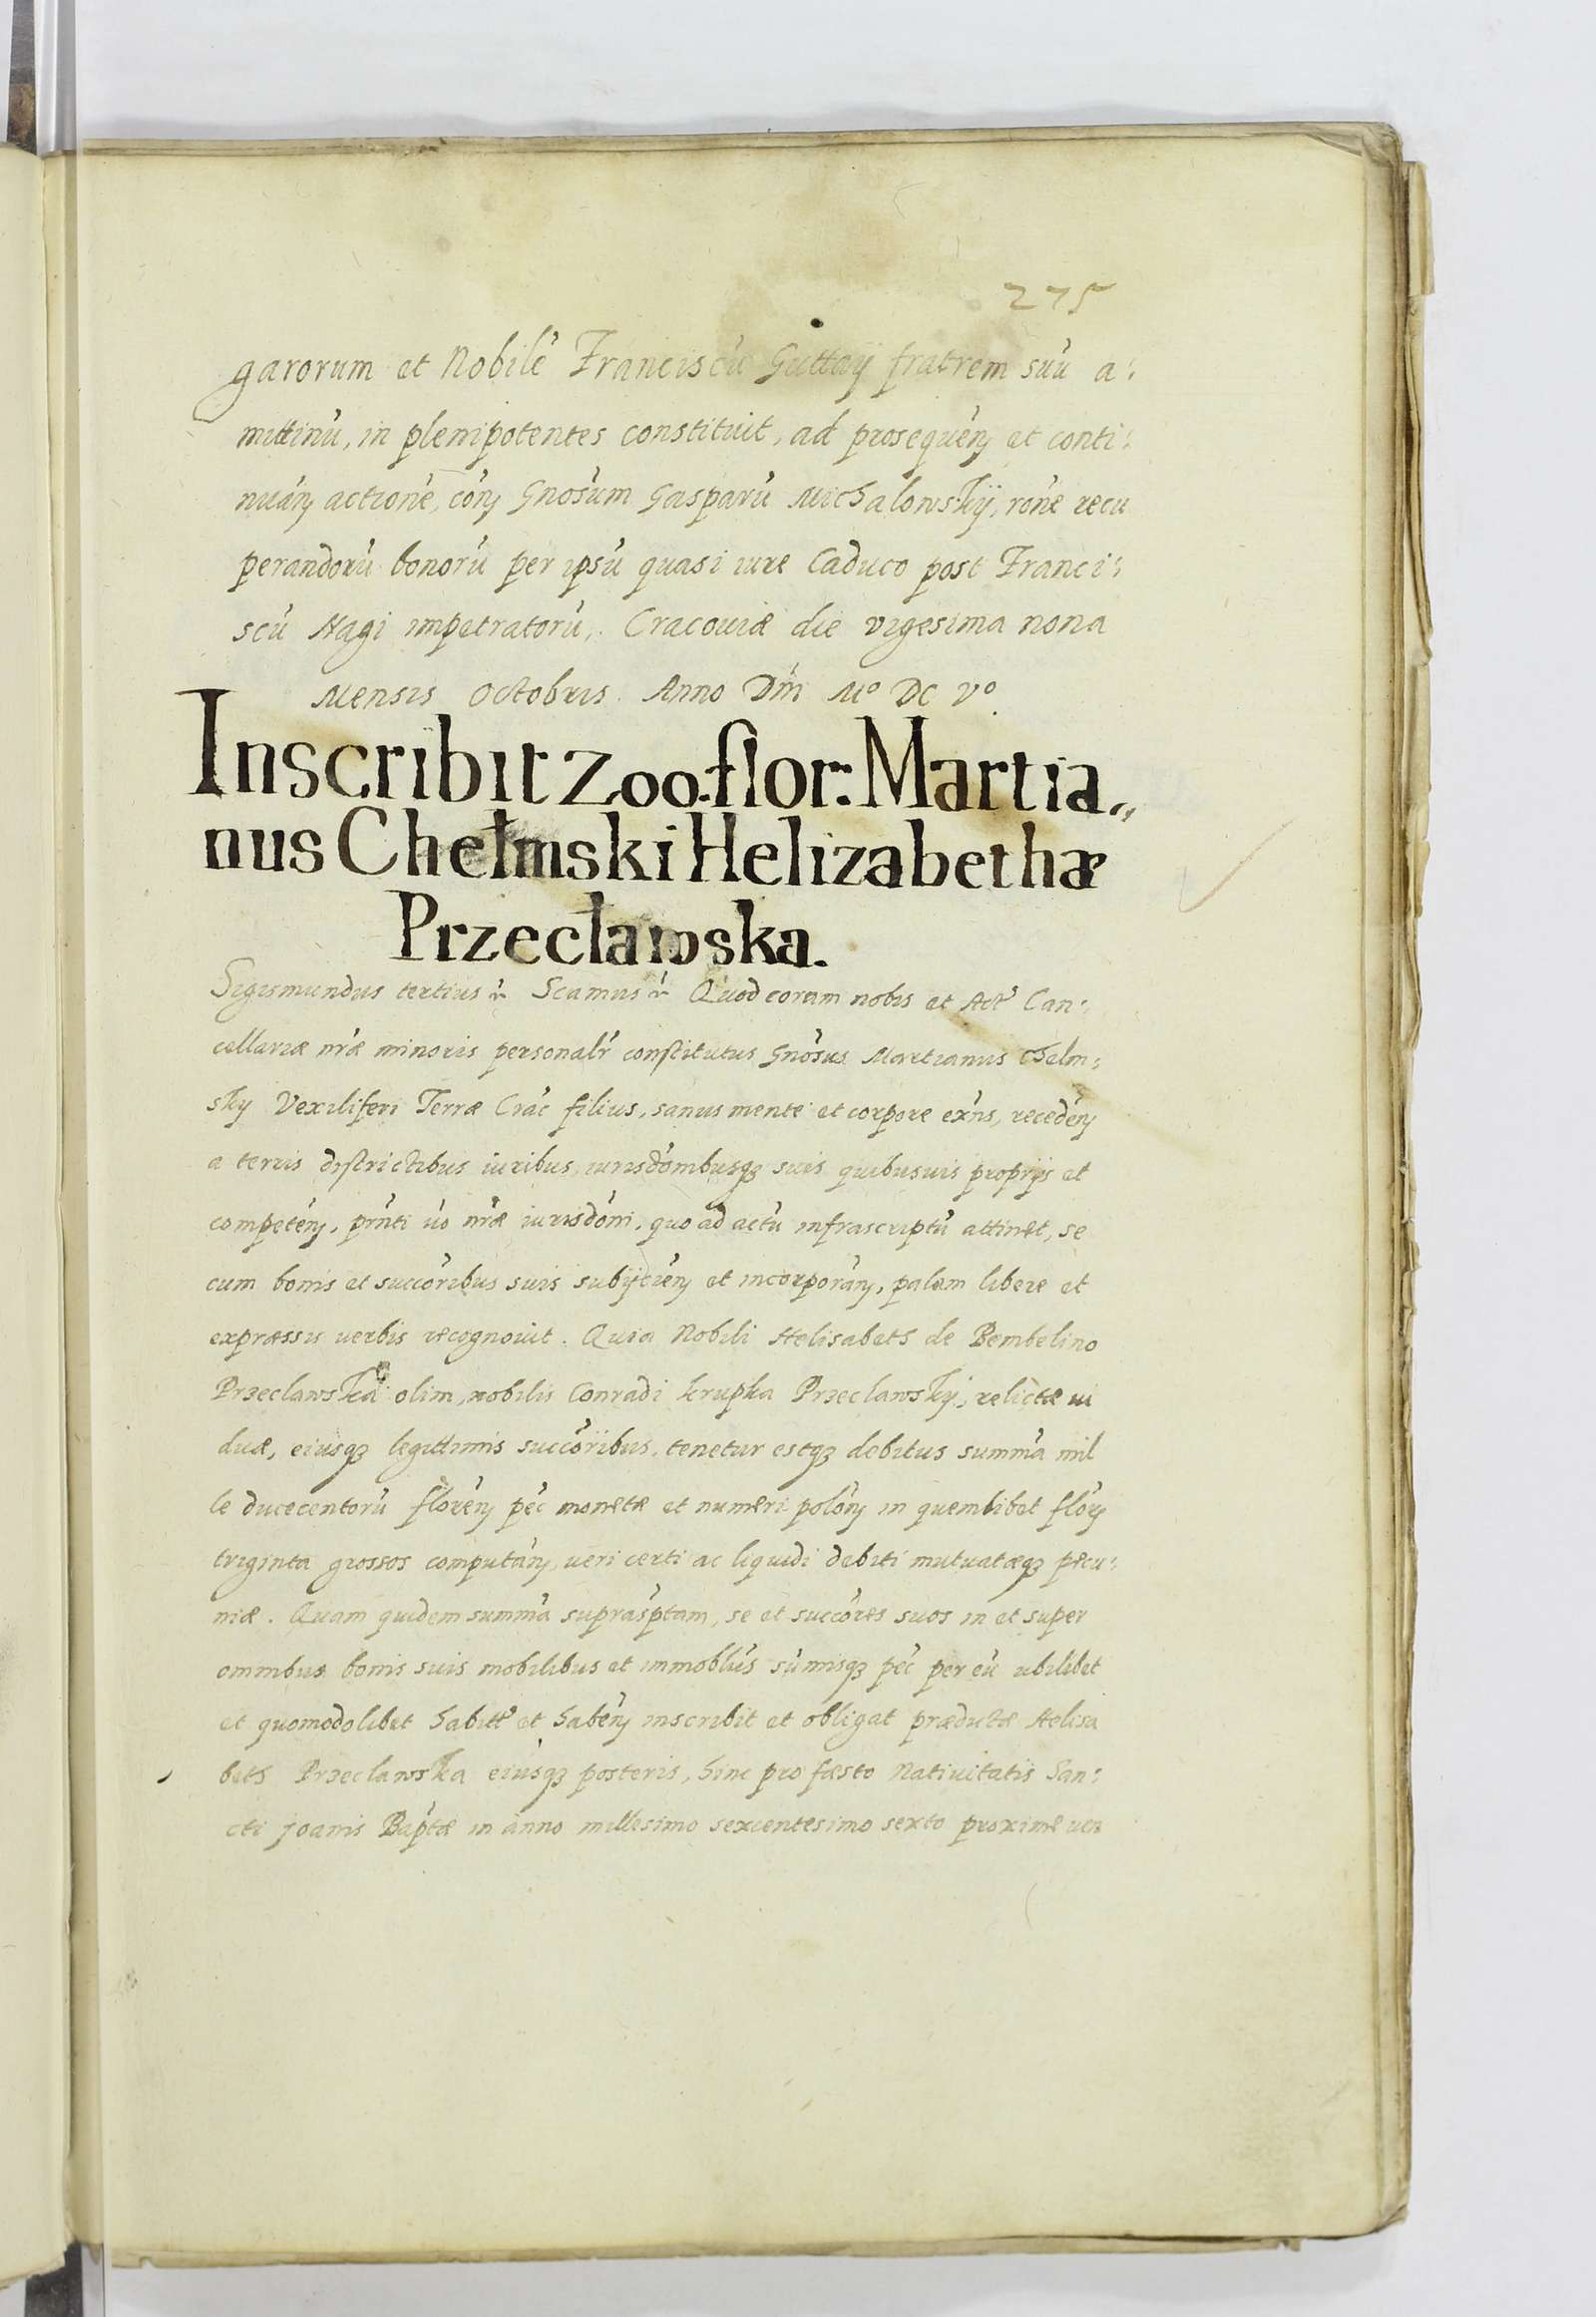 275
garorum et Nobilē Franciscū Guttaÿ fratrem suū a:
mittinū, in plenipotentes constituit, ad prosequen̄ et conti:
nuan̄ actionē, con̄ Gnosum Gasparū Michalowskÿ, rōne recu
perandorū bonorū per ipsū quasi iure Caduco post Franci:
scū Nagi impetratorū, Cracouiæ die vigesima nona
Mensis Octobris Anno Dm̄ Mº DC Vº
Inscribit Zoo. flor: Martia„
nus Chełmski Helizabethæ
Przecławska.
Sigismundus tertius Scamus Quod coram nobis et Act' Can:
cellariæ nr̄æ minoris personalr̄ constitutus Gnōsus Martianus Chelm:
sky Vexiliferi Terræ Crac̄ filius, sanus mente et corpore exn̄s, recedēn
a terris districtibus iuribus, iurisdōnibusqȝ suis quibusuis proprijs et
competēn, prn̄ti ūo nr̄æ iurisdōni, quo ad actū infrascriptū attinet, se
cum bonis et succōribus suis subijciēn et incorporān, palam libere et
expræssis verbis recognouit. Quia Nobili Helisabeth de Bembelino
Przeclawska olim, nobilis Conradi krupka Przeclawskÿ, relictæ ui
duæ, eiusqȝ legittimis succōribus, tenetur estqȝ debitus summā mil
le ducecentorū florēn pec̄ monetæ et numeri polōn in quemlibet flōrn
triginta grossos computān, ueri certi ac liquidi debiti mutuatæqȝ pecu:
niæ. Quam quidem summā suprasp̄tam, se et succōres suos in et super
omnibus bonis suis mobilibus et immobl̄us sūmisqȝ pec̄ per eū ubilibet
et quomodolibet habitt' et habēn inscribit et obligat prædictæ Helisa
beth Przeclawska eiusqȝ posteris, hinc pro fæsto Natiuitatis San:
cti Joanis Bap̄tæ in anno millesimo sexcentesimo sexto proxime uen